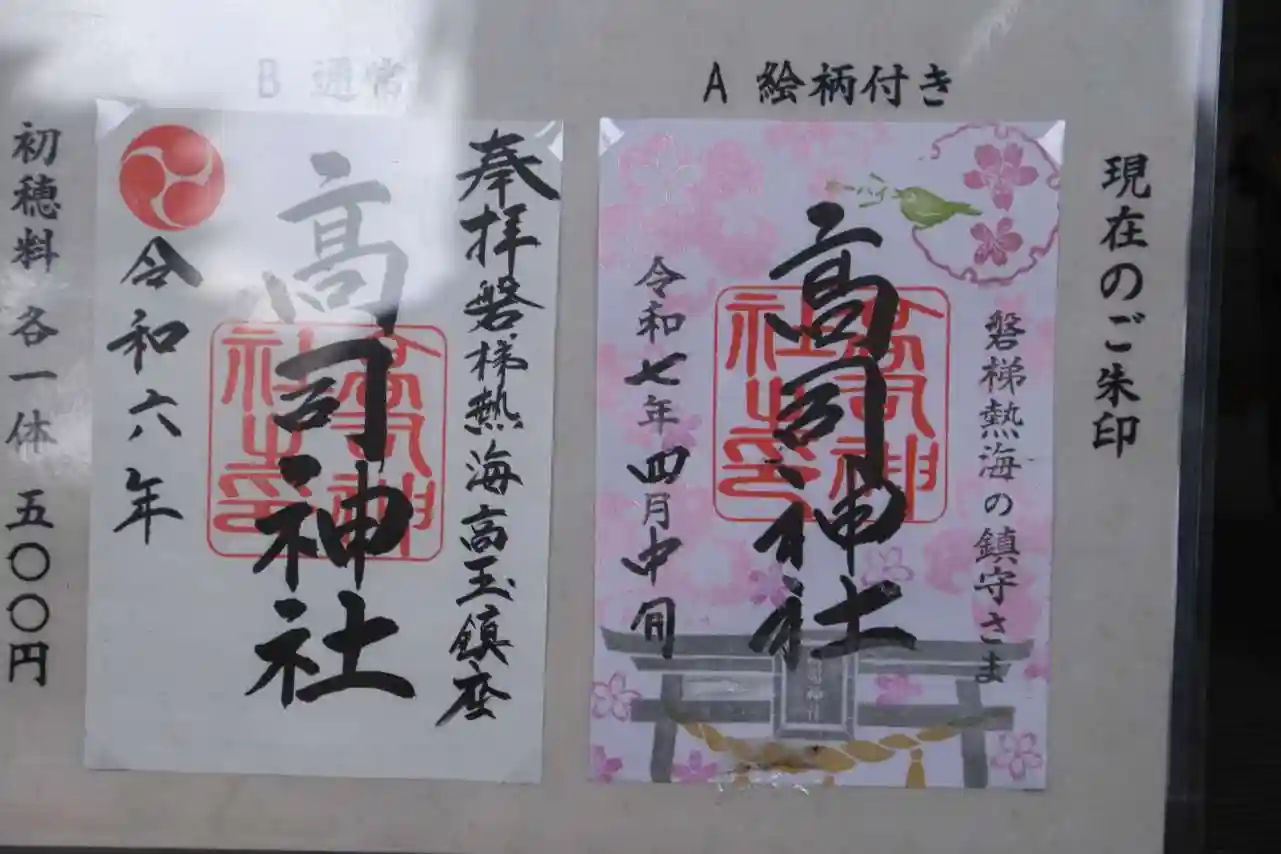 現在のご朱印
A 絵柄付き
磐梯熱海の鎮守さま
高司神社
令和七年四月中旬
B 通常
奉拝 磐梯熱海高玉鎮座
高司神社
令和六年
初穂料各一体 五〇〇円